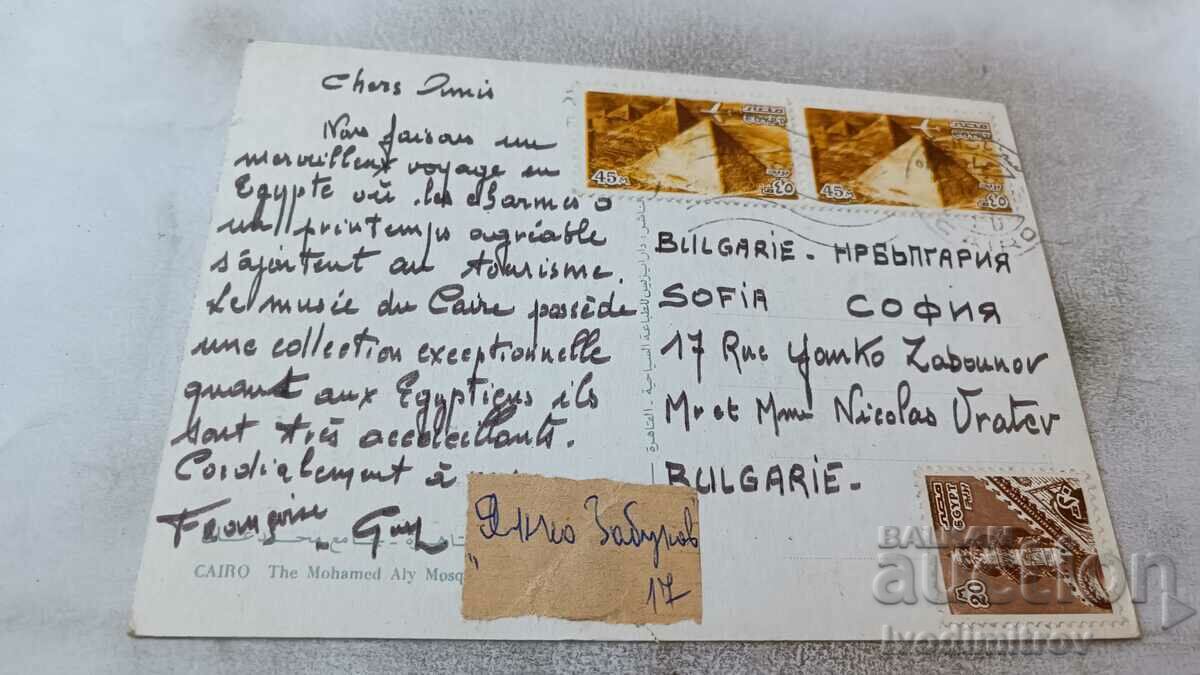 Chers Amis
Nous faisons un
merveilleux voyage en
Egypte où les charmes d
un printemps agréable
s'ajoutent au tourisme.
Le musée du Caire possède
une collection exceptionnelle
quant aux Egyptiens ils
sont très accueillants.
Cordialement à
Françoise Guy
CAIRO The Mohamed Aly Mosq
45M مصر EGYPT ٤٥
45M مصر EGYPT ٤٥
BULGARIE - НРБЪЛГАРИЯ
SOFIA СОФИЯ
17 Rue Yanko Zabounov
Mr et Mme Nicolas Vratev
BULGARIE -
Янко Забунов
17
مصر EGYPT
20 M
BALKAN
auction
Ivodimitrov